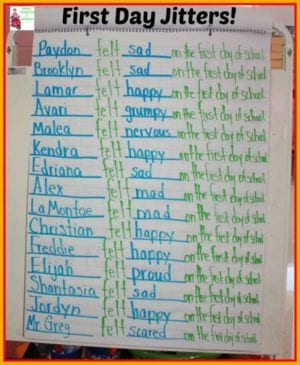 First Day Jitters!
Paydon felt sad on the first day of school.
Brooklyn felt sad on the first day of school.
Lamar felt happy on the first day of school.
Avari felt grumpy on the first day of school.
Malea felt nervous on the first day of school.
Kendra felt happy on the first day of school.
Edriana felt sad on the first day of school.
Alex felt mad on the first day of school.
La Montae felt mad on the first day of school.
Christian felt happy on the first day of school.
Freddie felt happy on the first day of school.
Elijah felt proud on the first day of school.
Shantasia felt sad on the first day of school.
Jordyn felt happy on the first day of school.
Mr. Greg felt scared on the first day of school.